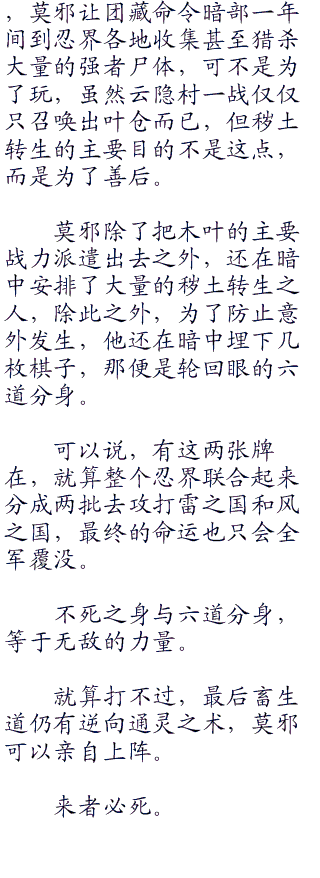 ，莫邪让团藏命令暗部一年
间到忍界各地收集甚至猎杀
大量的强者尸体，可不是为
了玩，虽然云隐村一战仅仅
只召唤出叶仓而已，但秽土
转生的主要目的不是这点，
而是为了善后。
莫邪除了把木叶的主要
战力派遣出去之外，还在暗
中安排了大量的秽土转生之
人，除此之外，为了防止意
外发生，他还在暗中埋下几
枚棋子，那便是轮回眼的六
道分身。
可以说，有这两张牌
在，就算整个忍界联合起来
分成两批去攻打雷之国和风
之国，最终的命运也只会全
军覆没。
不死之身与六道分身，
等于无敌的力量。
就算打不过，最后畜生
道仍有逆向通灵之术，莫邪
可以亲自上阵。
来者必死。